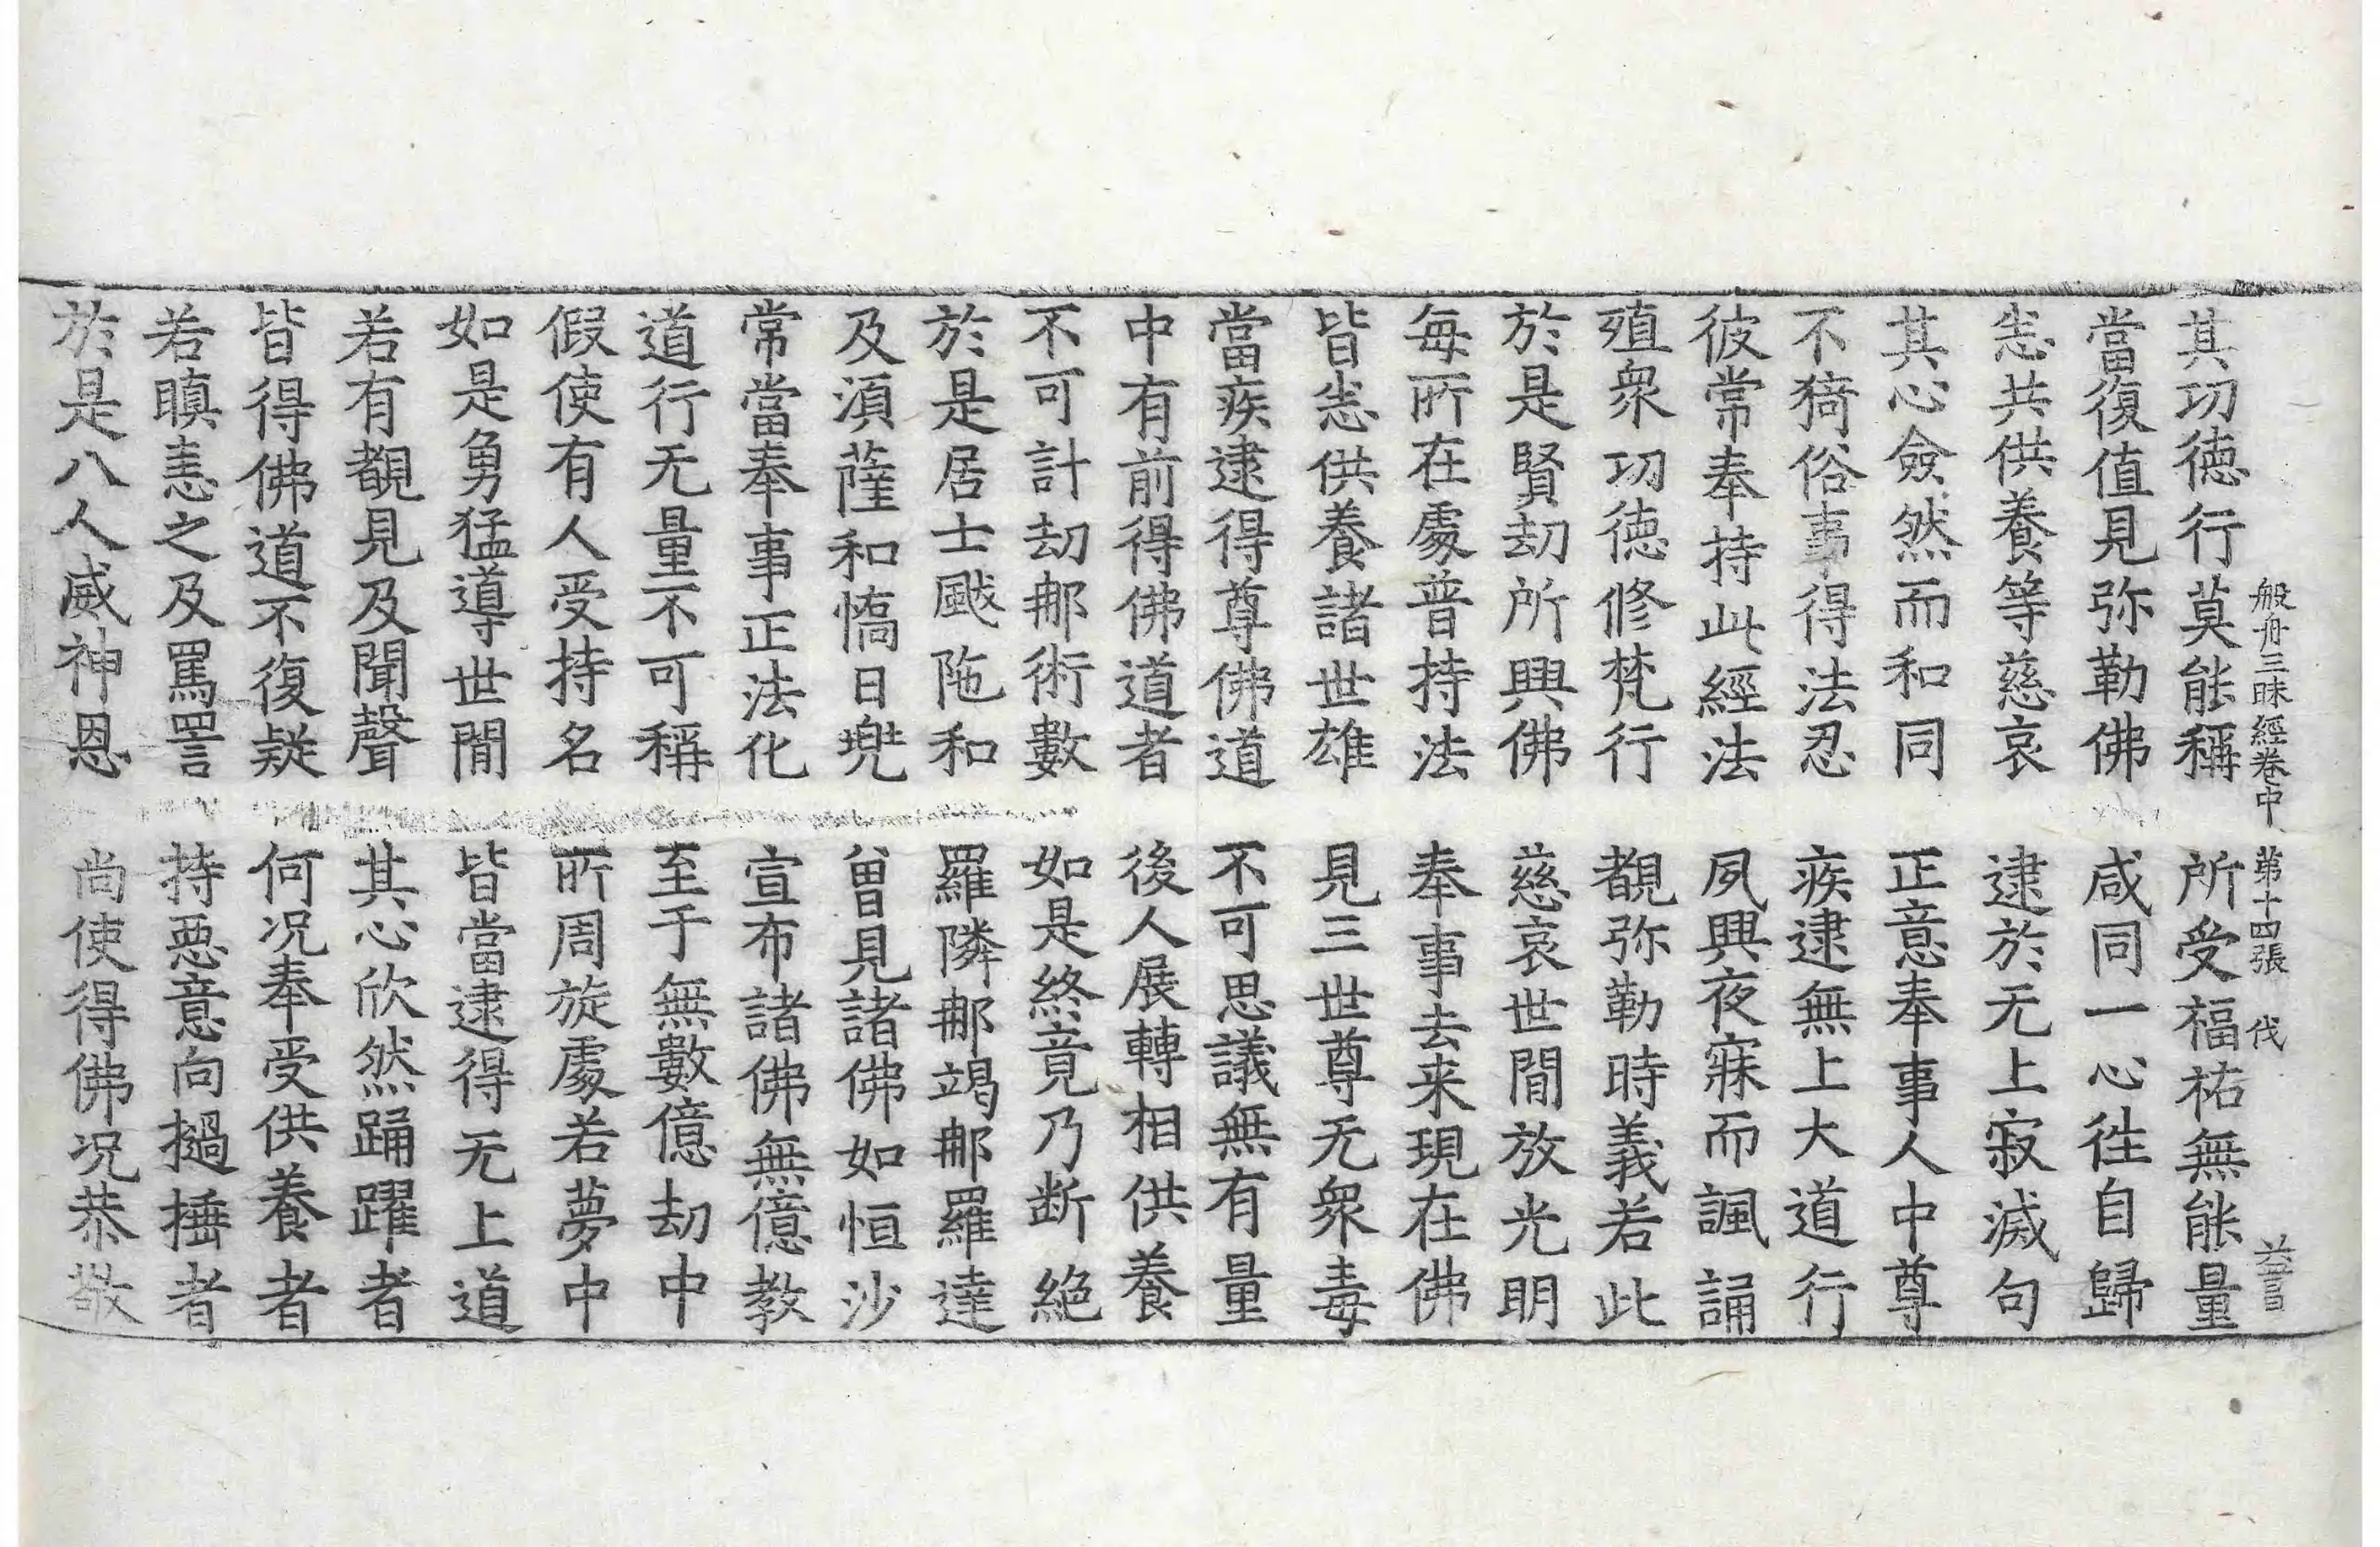 般舟三昧經卷中 第十四張 伐 益詈
其功德行莫能稱 所受福祐無能量
當復值見弥勒佛 咸同一心往自歸
悉共供養等慈哀 逮於无上寂滅句
其心僉然而和同 正意奉事人中尊
不猗俗事得法忍 疾逮無上大道行
彼常奉持此經法 夙興夜寐而諷誦
殖衆功德修梵行 覩弥勒時義若此
於是賢劫所興佛 慈哀世間放光明
每所在處普持法 奉事去来現在佛
皆悉供養諸世雄 見三世尊无衆毒
當疾逮得尊佛道 不可思議無有量
中有前得佛道者 後人展轉相供養
不可計劫郍術數 如是終竟乃断絶
於是居士颰陁和 羅隣郍竭郍羅達
及湏薩和憍日兠 曾見諸佛如恒沙
常當奉事正法化 宣布諸佛無億教
道行无量不可稱 至于無數億劫中
假使有人受持名 所周旋處若夢中
如是勇猛導世間 皆當逮得无上道
若有覩見及聞聲 其心欣然踊躍者
皆得佛道不復疑 何况奉受供養者
若瞋恚之及罵詈 持惡意向撾捶者
於是八人威神恩 尚使得佛况恭敬